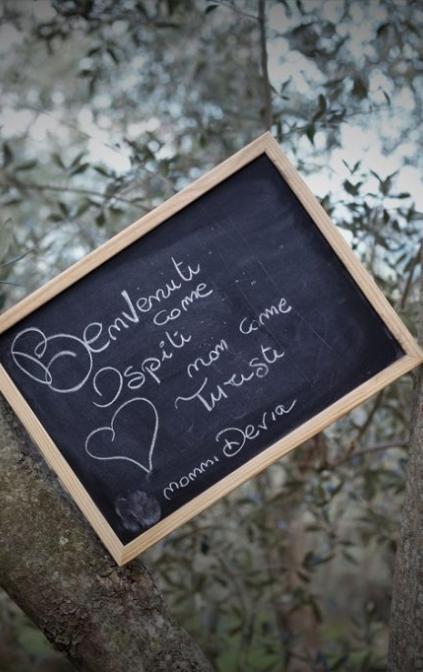 Benvenuti
come
Ospiti
non come
Turisti
nonni Devia